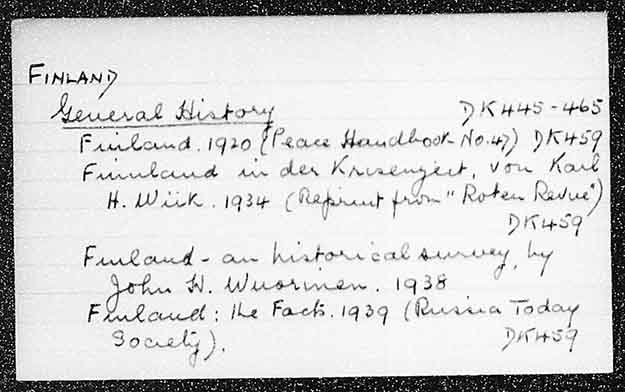 FINLAND
General History DK445-465
Finland. 1920 (Peace Handbook No. 47) DK459
Finnland in der Krisenzeit, von Karl
H. Wiik. 1934 (Reprint from "Roten Revue")
DK459
Finland - an historical survey, by
John H. Wuorinen. 1938
Finland: the Facts. 1939 (Russia Today
Society). DK459